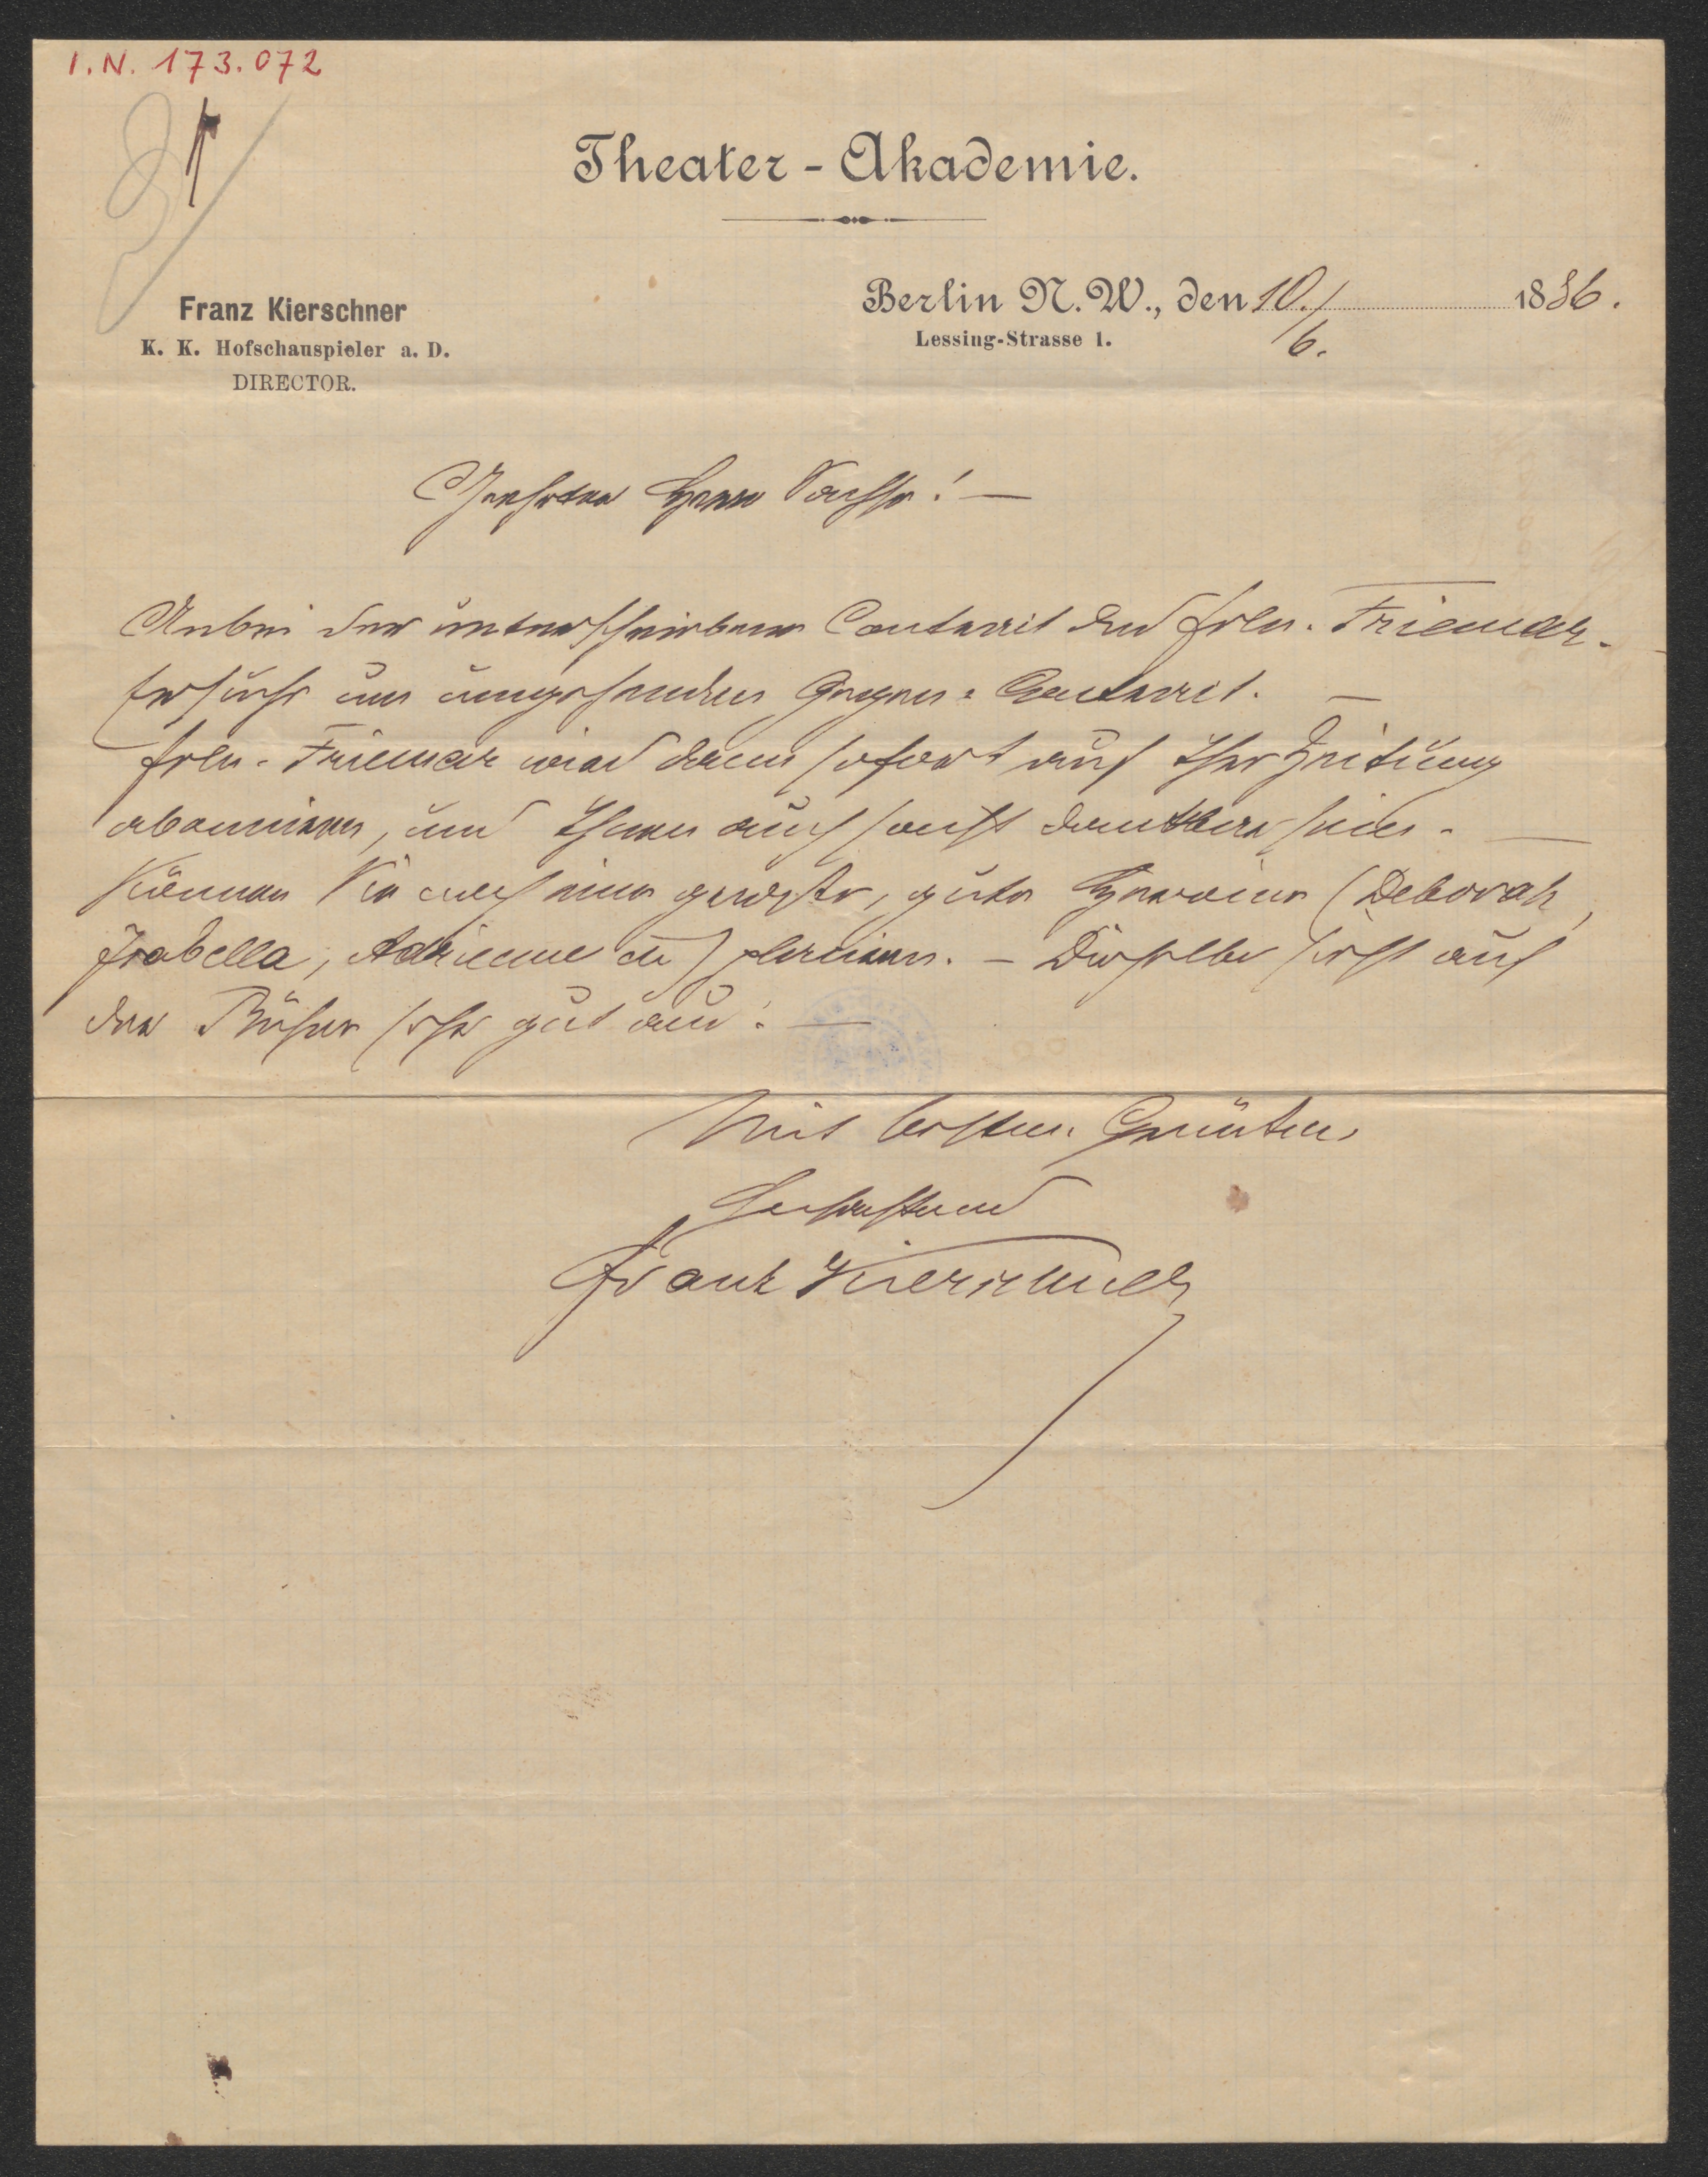 I.N. 173.072
Theater-Akademie.
Franz Kierschner
K. K. Hofschauspieler a. D.
DIRECTOR.
Berlin N. W., den 10./6. 1886.
Lessing-Strasse 1.
Geehrter Herr Sachse! —
Anbei der unterschriebene Contract des Frln. Friemar.
Ersuche um umgehenden Gegen-Contract. —
Frln. Friemar wird dann sofort auf Ihre Zeitung
abonniren, und Ihnen auch sonst dankbar sein. —
Können Sie noch eine gute Heroine (Deborah,
Isabella, Adrienne etc) placiren. — Dieselbe sieht auf
der Bühne sehr gut aus. —
Mit besten Grüßen
Hochachtend
Franz Kierschner